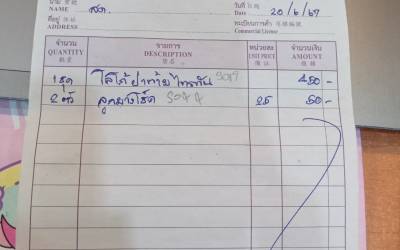 นาม
NAME สด. วันที่ Date 20/6/67
ที่อยู่
ADDRESS ทะเบียนการค้า
Commercial License
จำนวน รายการ หน่วยละ จำนวนเงิน
QUANTITY DESCRIPTION UNIT PRICE AMOUNT
1 ชุด โลโก้ฝาท้ายไททัน 450 -
2 ตัว ลูกยางโช๊ค 25 50 -